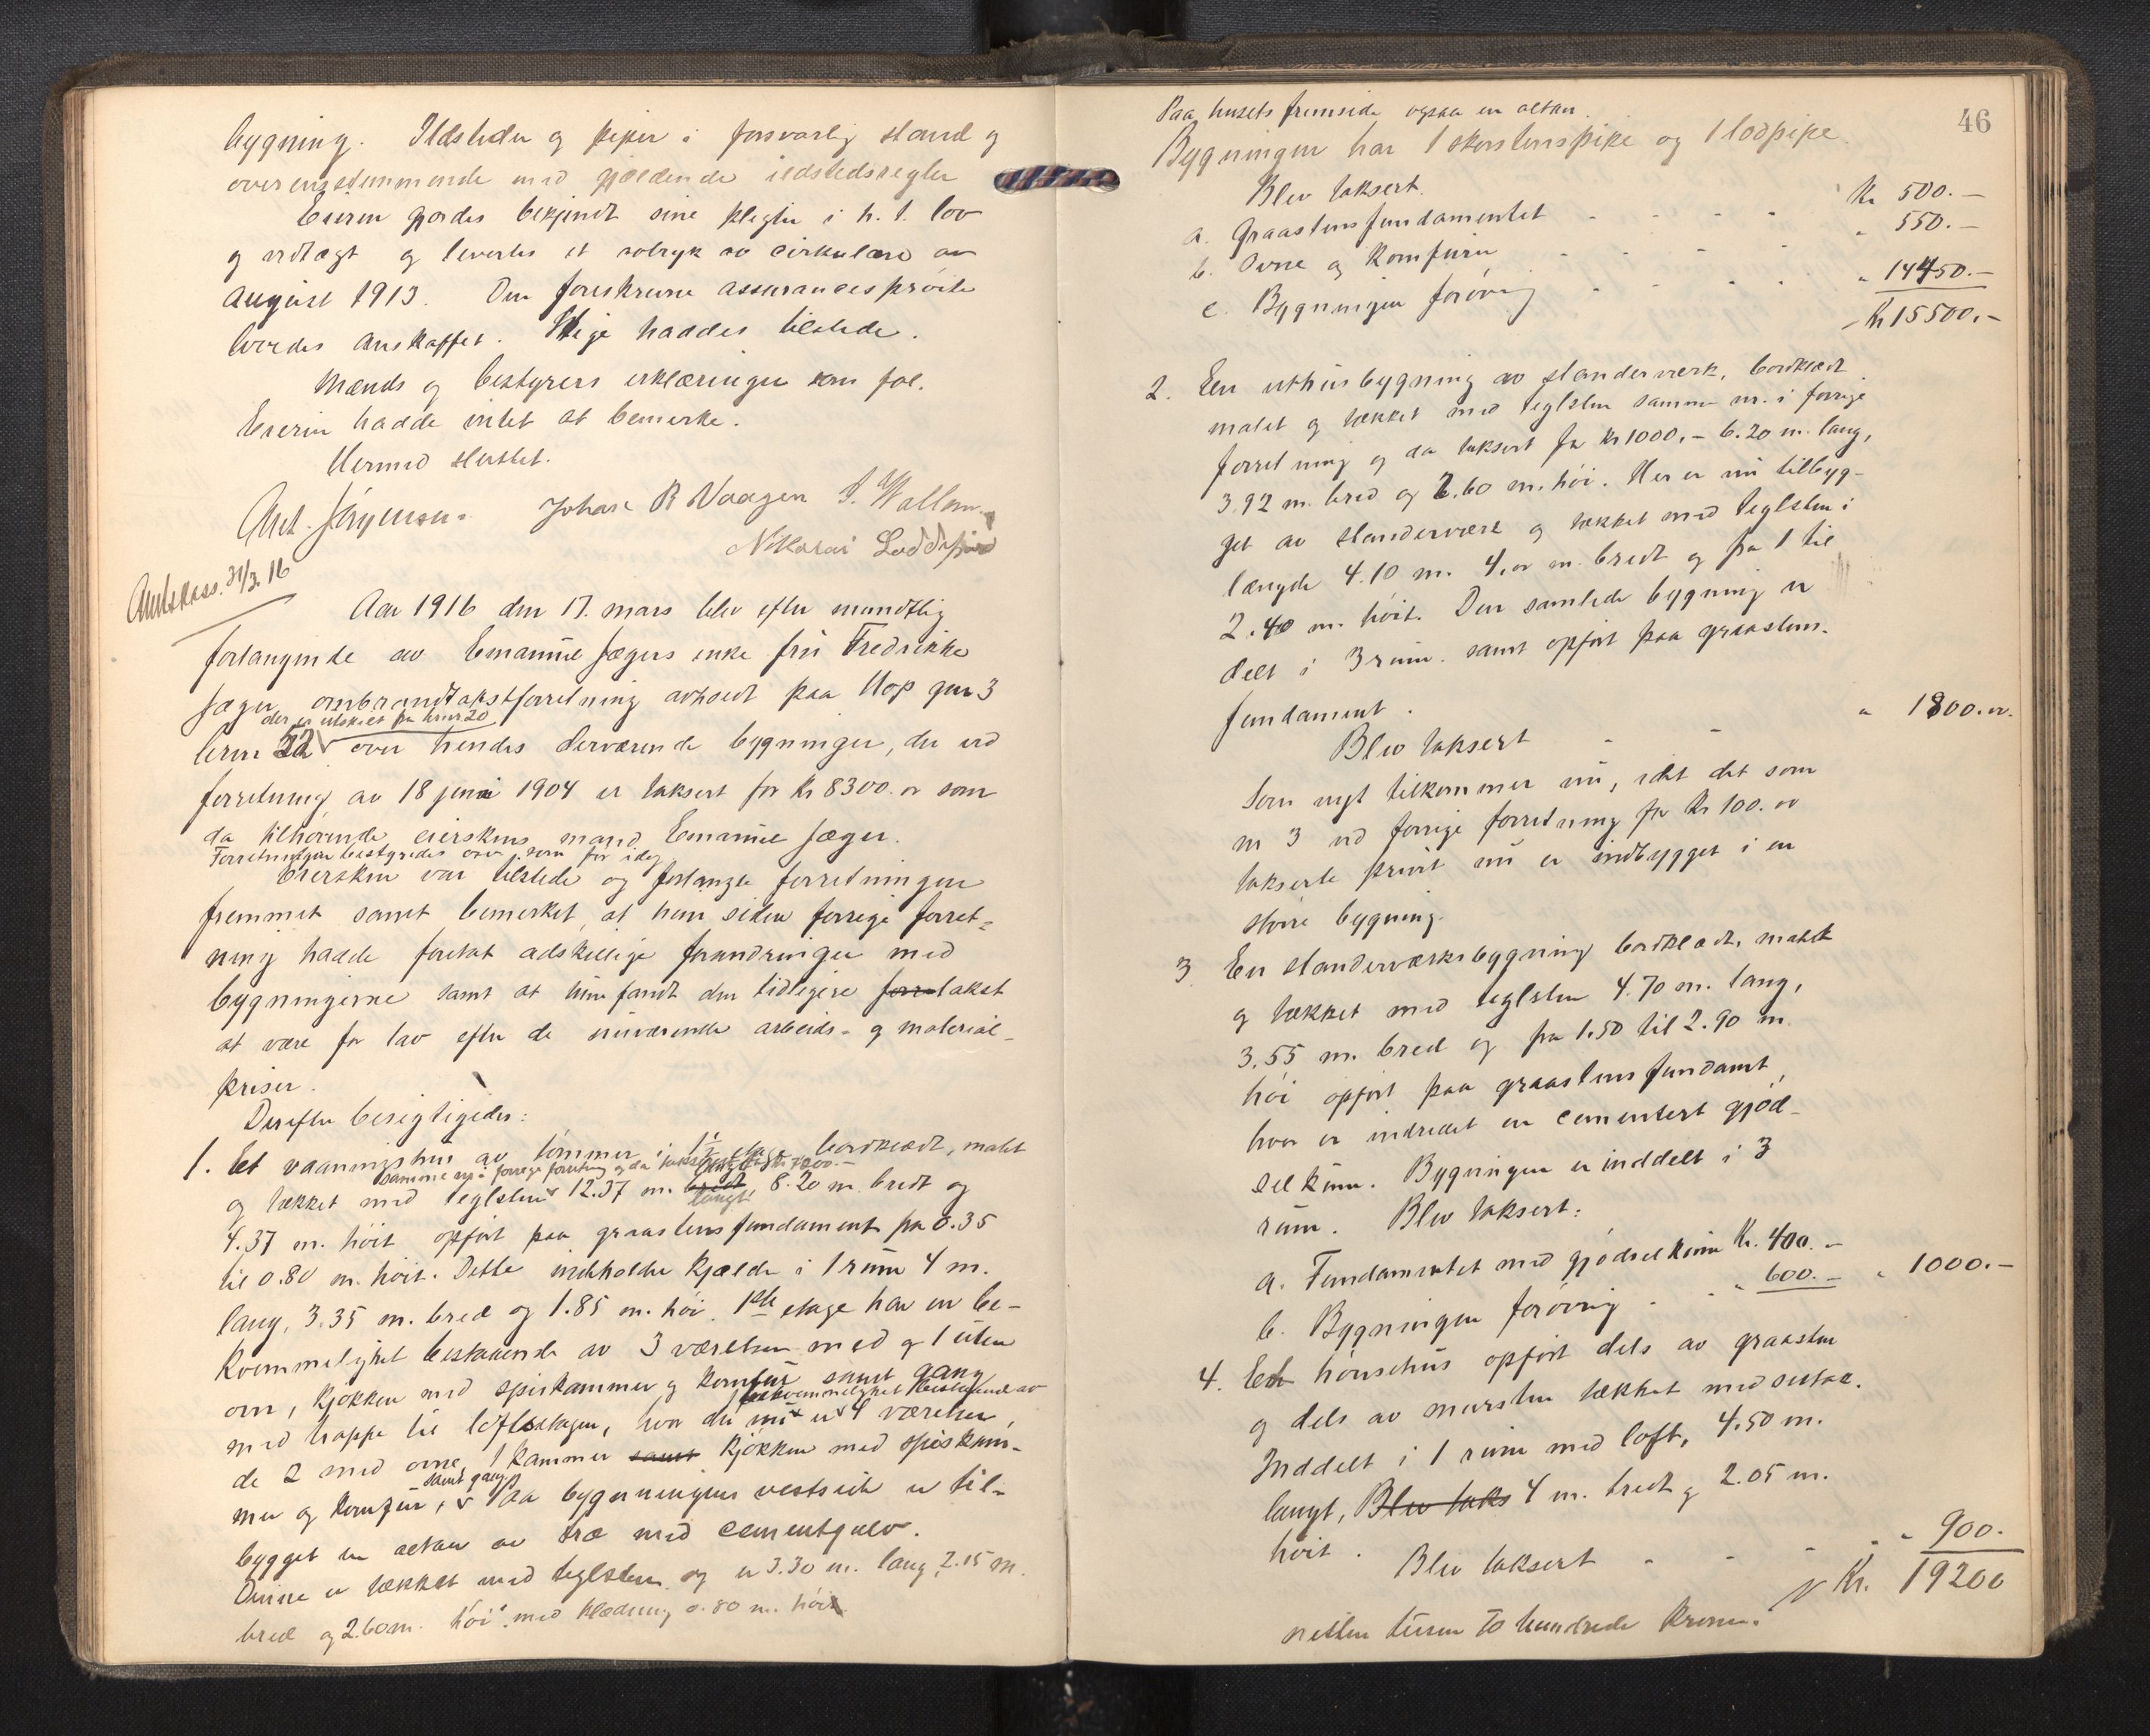 bygning. Ildsteder og piper i forsvarlig stand og
overensstemmende med gjældende ildstedsregler
Eieren gjordes bekjendt sine pligter i h. t. lov
og vedtægt og levertes et avtryk av cirkulære av
august 1913. Den foreskrevne assurancesprøite
burdes anskaffet. Stige haddes tilstede.
Mænds og bestyrers erklæringer som fol.
Eieren hadde intet at bemerke.
Hermed sluttet.
Ant. Jørgensen. Johan R Vaagen S. Wallem
Nikolai Loddefjord
Amtskass. 31/3 16
Aar 1916 den 17. mars blev efter mundtlig
forlangende av Emanuel Jægers enke fru Fredrikke
Jæger ombrandtakstforretning avholdt paa Hop gnr 3
der er utskilt fra brnr 20
brnr 22 over hendes derværende bygninger, der ved
forretning av 18 juni 1904 er taksert for Kr 8300.00 som
da tilhørende eierskens mand Emanuel Jæger.
Forretningen bestyredes som for idag
Eiersken var tilstede og forlangte forretningen
fremmet samt bemerket, at hun siden forrige forret-
ning hadde foretat adskillige forandringer med
bygningerne samt at hun fandt den tidligere forr takst
at være for lav efter de nuværende arbeids- og material-
priser.
Derefter besigtigedes:
1. Et vaaningshus av tømmer i 1½ etage bordklædt, malt
samme nr i forrige forretning og da taksert for Kr 7200.-
og tækket med teglsten 12.37 m. bredt langt, 8.20 m bredt og
4.37 m. høit opført paa graastensfundament fra 0.35
til 0.80 m. høit. Dette indholder kjælder i 1 rum 4 m.
lang, 3.35 m. bred og 1.85 m. høi. 1ste etage har en be-
kvemmelighet bestaaende av 3 værelser med og 1 uten
ovn, kjøkken med spiskammer og komfur samt gang
bekvemmelighet bestaaende av
med trappe til loftsetagen, hvor der nu er 4 værelser,
de 2 med ovne, 1 kammer samt kjøkken med spiskam-
samt gang
mer og komfur, Paa bygningens vestside er til-
bygget en altan av træ med cementgulv.
Denne er tækket med teglsten og er 3.30 m. lang, 2.15 m.
bred og 2.60 m. høi med klædning 0.80 m. høit
46
Paa husets fremside ogsaa en altan.
Bygningen har 1 skorstenspipe og 1 lodpipe.
Blev taksert.
a. Graastensfundamentet - - - - Kr 500.-
b. Ovne og komfurer - - - - " 550.-
c. Bygningen forøvrig - - - - " 14450.-
Kr 15500.-
2. En uthusbygning av standerværk, bordklædt
malet og tækket med teglsten samme nr. i forrige
forretning og da taksert for Kr 1000.- 6.20 m. lang,
3.92 m. bred og 2.60 m. høi. Her er nu tilbyg-
get av standerværk og tækket med teglsten i
længde 4.10 m. 4.00 m. bredt og fra 1 til
2.40 m. høit. Den samlede bygning er
delt i 3 rum. samt opført paa graastens-
fundament.
Blev taksert - - " 1800.00.
Som nyt tilkommer nu, idet det som
nr 3 ved forrige forretning for Kr 100.00
takserte privet nu er indbygget i en
større bygning.
3. En standerværksbygning bordklædt, malet
og tækket med teglsten 4.70 m. lang,
3.55 m. bred og fra 1.50 til 2.90 m.
høi opført paa graastensfundamt,
hvor er indredet en cementert gjød-
selkum. Bygningen er inddelt i 3
rum. Blev taksert:
a. Fundamentet med gjødselkum Kr. 400.-
b. Bygningen forøvrig - - " 600.- " 1000.-
4. Et hønsehus opført dels av graasten
og dels av mursten tækket med
Inddelt i 1 rum med loft, 4.50 m.
langt, Blev taks 4 m. bredt og 2.05 m.
høit. Blev taksert - - - " 900.-
Kr. 19200
nitten tusen to hundrede kroner.